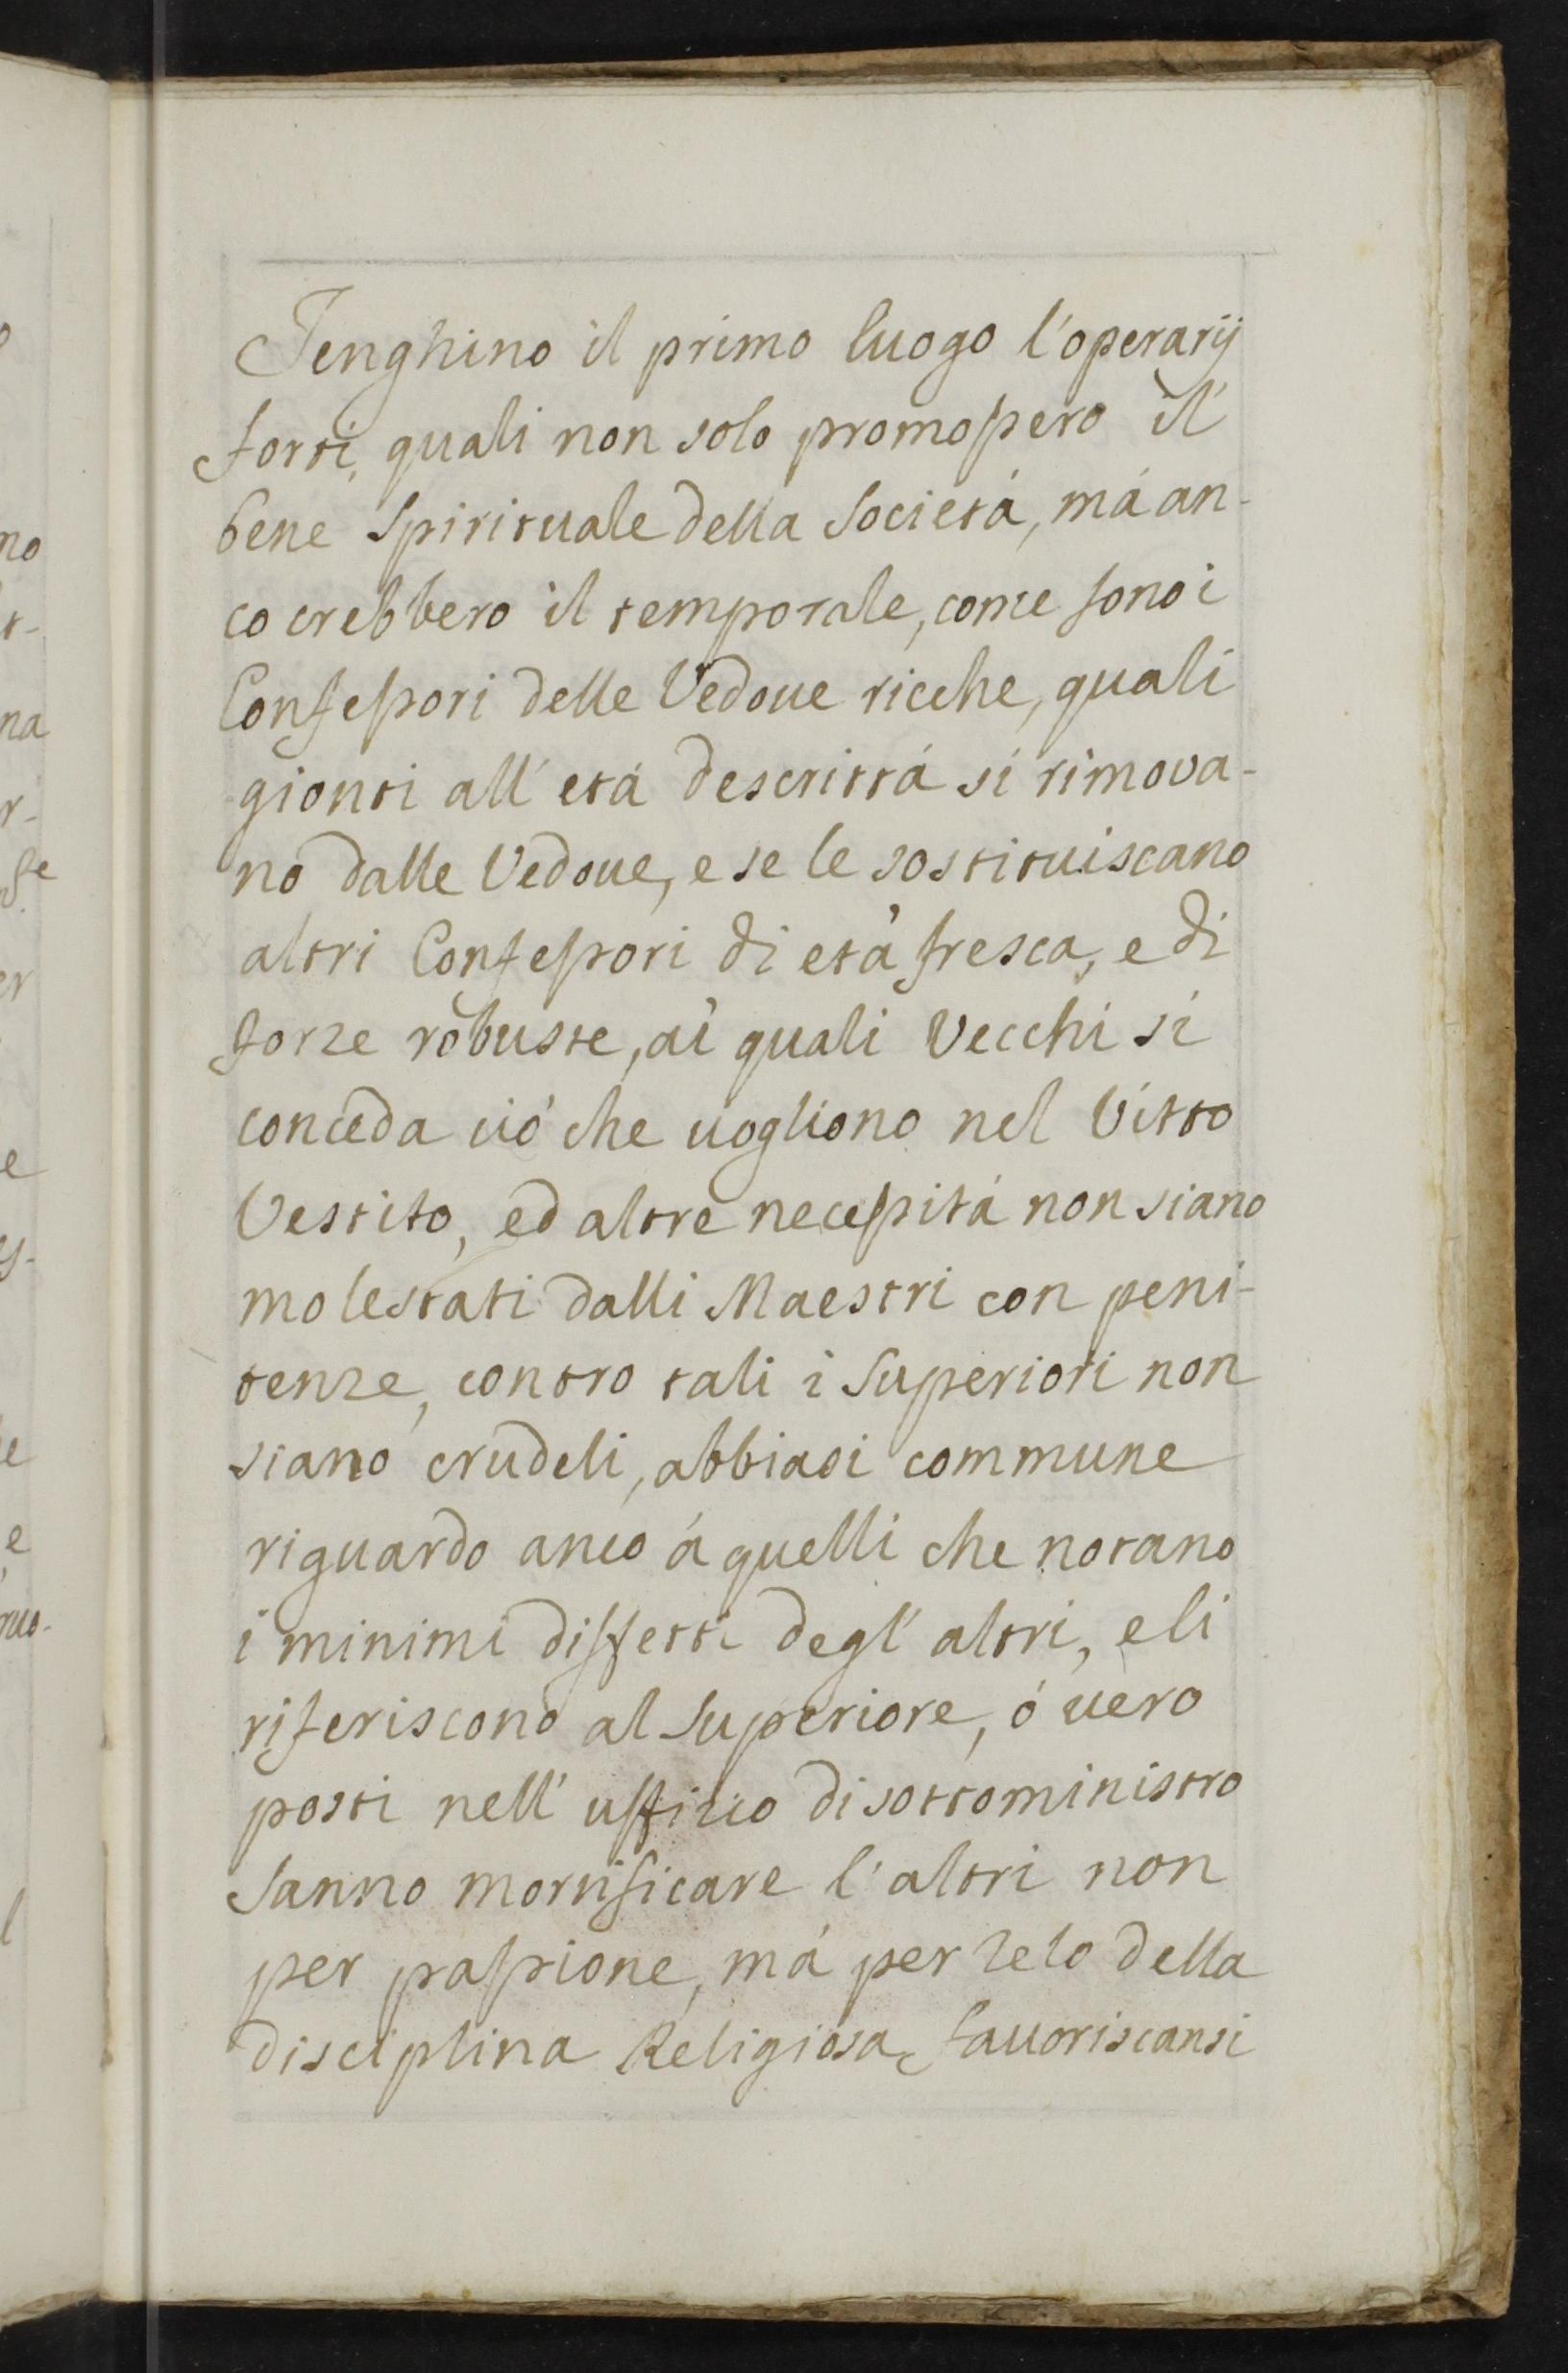 Tenghino il primo luogo l'operarij
forti, quali non solo promossero il
bene Spirituale della Società, má an-
co crebbero il temporale, come sono i
Confessori delle Vedoue ricche, quali
gionti all' etá descrittá si rimova-
no dalle Vedoue, e se le sostituiscano
altri Confessori di etá fresca, e di
forze robuste, ai quali Vecchi si
conceda ció che uogliono nel Vitto
Vestito, ed altre necessitá non siano
molestati dalli Maestri con peni-
tenze, contro tali i Superiori non
siano crudeli, abbiasi commune
riguardo anco á quelli che notano
i minimi diffetti degl' altri, e li
riferiscono al Superiore, ó uero
posti nell' uffitio di sottoministro
sanno mortificare l'altri non
per passione, má per zelo della
disciplina Religiosa, fauoriscansi